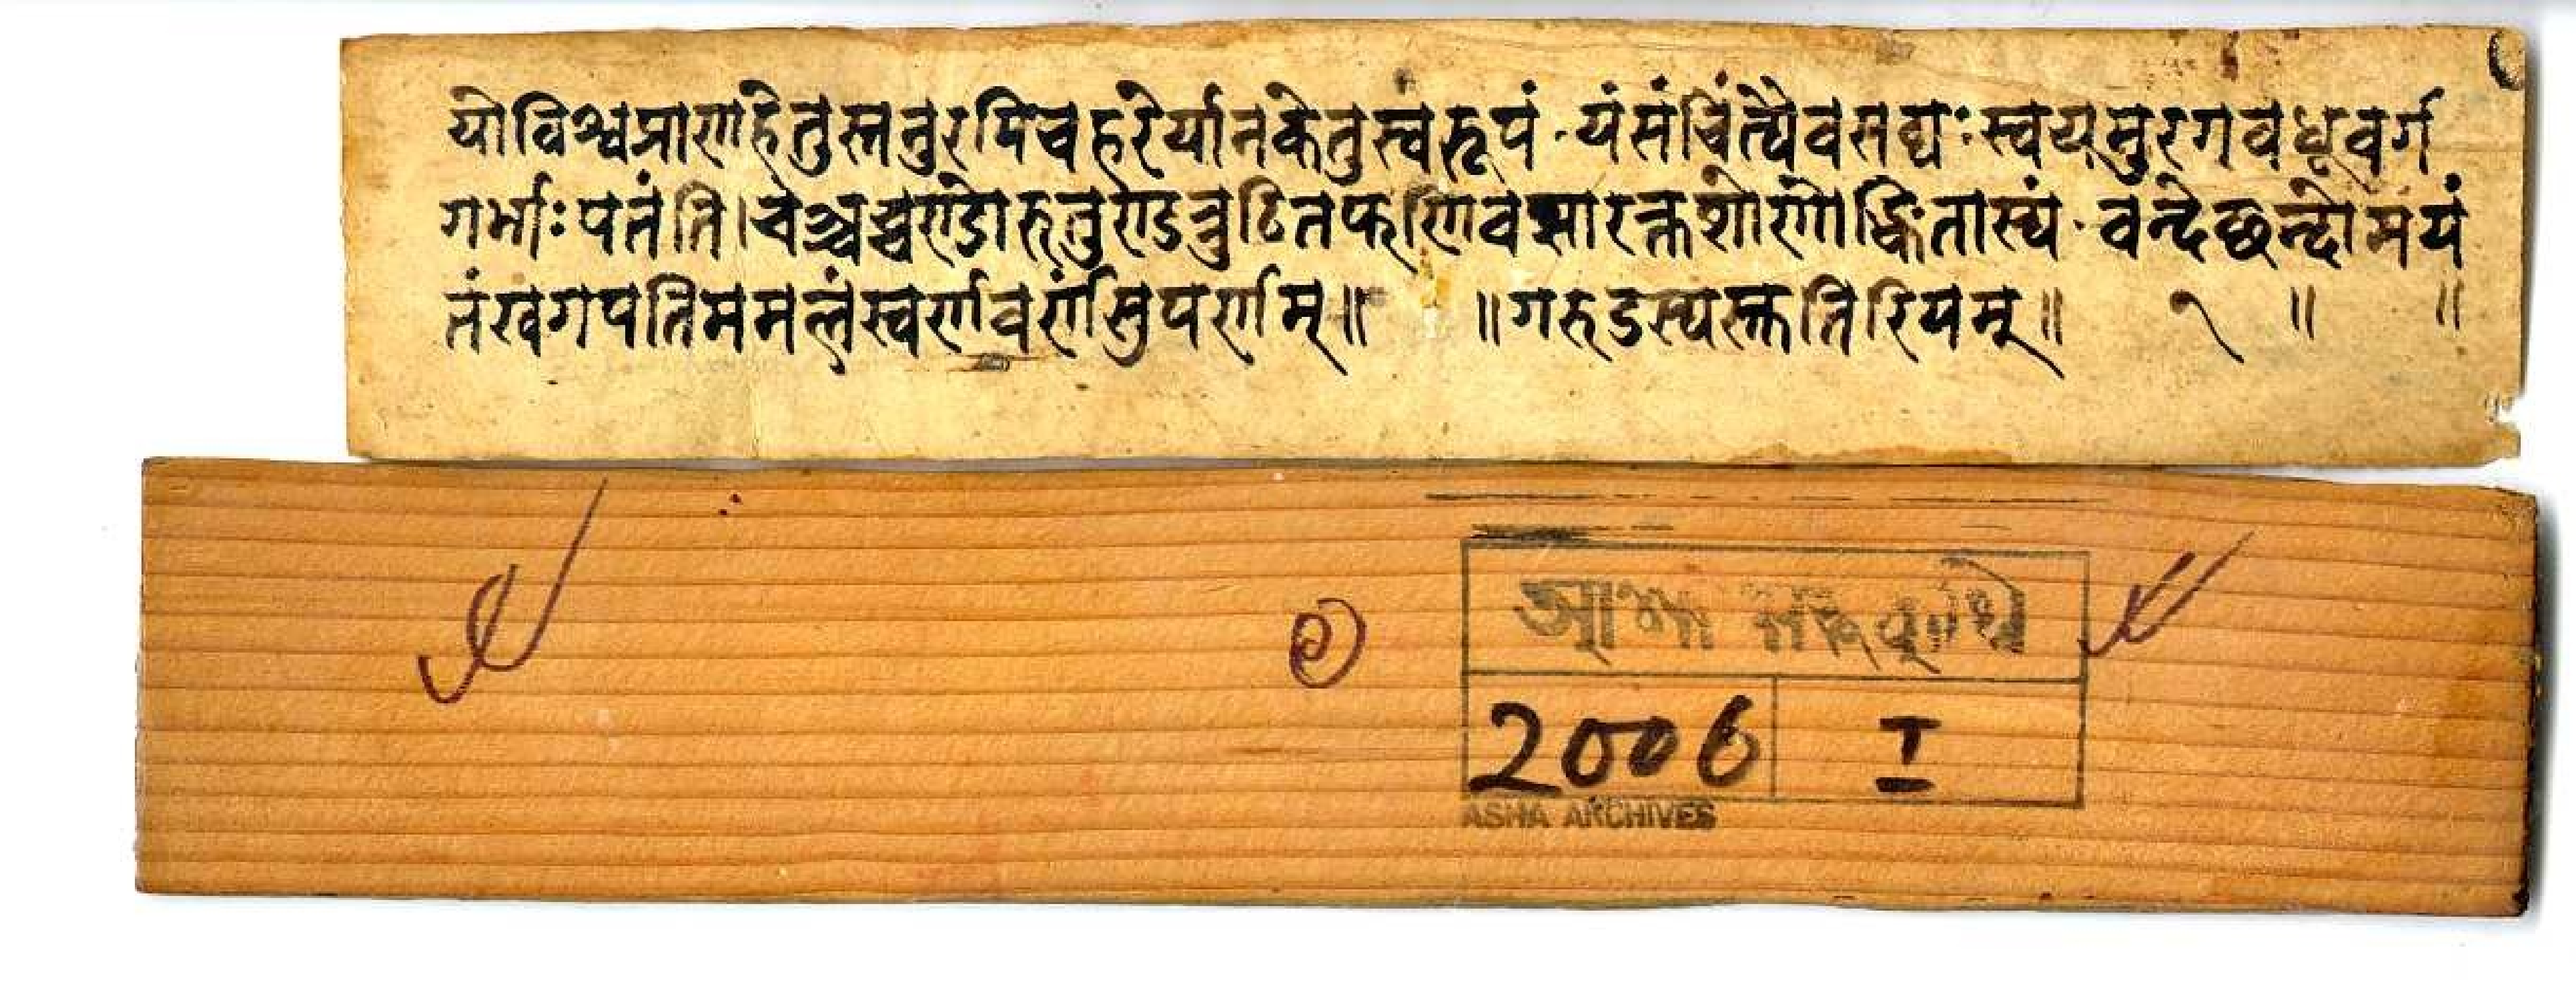 योविश्वप्राणहेतुस्तनुरपिचहरेर्यानकेतुस्वरूपं यंसंचिंत्यैवसद्यःस्वयमुरगवधूवर्ग
गर्भाःपतंति।चञ्चच्चण्डोरुतुण्डत्रुटितफणिवसारक्तशोणाङ्कितास्यं वन्देछन्दोमयं
तंखगपतिममलंस्वर्णवर्णंसुपर्णम्॥ ॥गरुडस्यस्तुतिरियम्॥ १ ॥ ॥
आशा सफूकुथि
2006 I
ASHA ARCHIVES